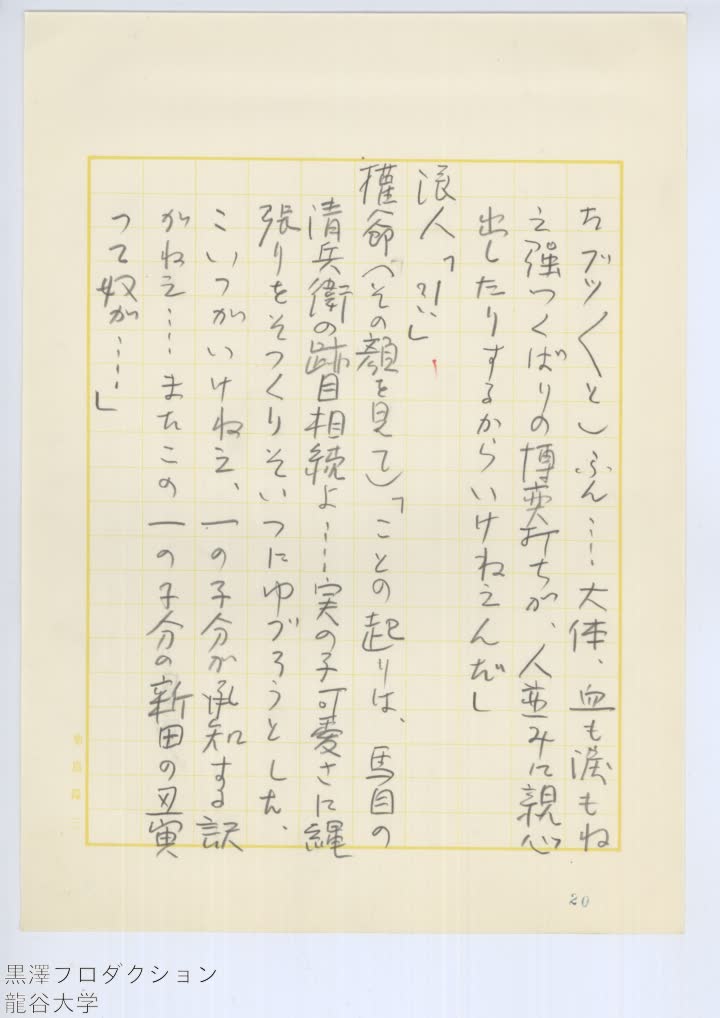 たブツ〱と)ふん……大体、血も涙もね
え強つくばりの博奕打ちが、人並みに親心
出したりするからいけねえんだ」
浪人「?!……」
権爺(その顔を見て)「ことの起りは、馬目の
清兵衛の跡目相続よ……実の子可愛さに縄
張りをそつくりそいつにゆづろうとした、
こいつがいけねえ、一の子分が承知する訳
がねえ……またこの一の子分の新田の丑寅
つて奴が……」
20
黒澤プロダクション
龍谷大学